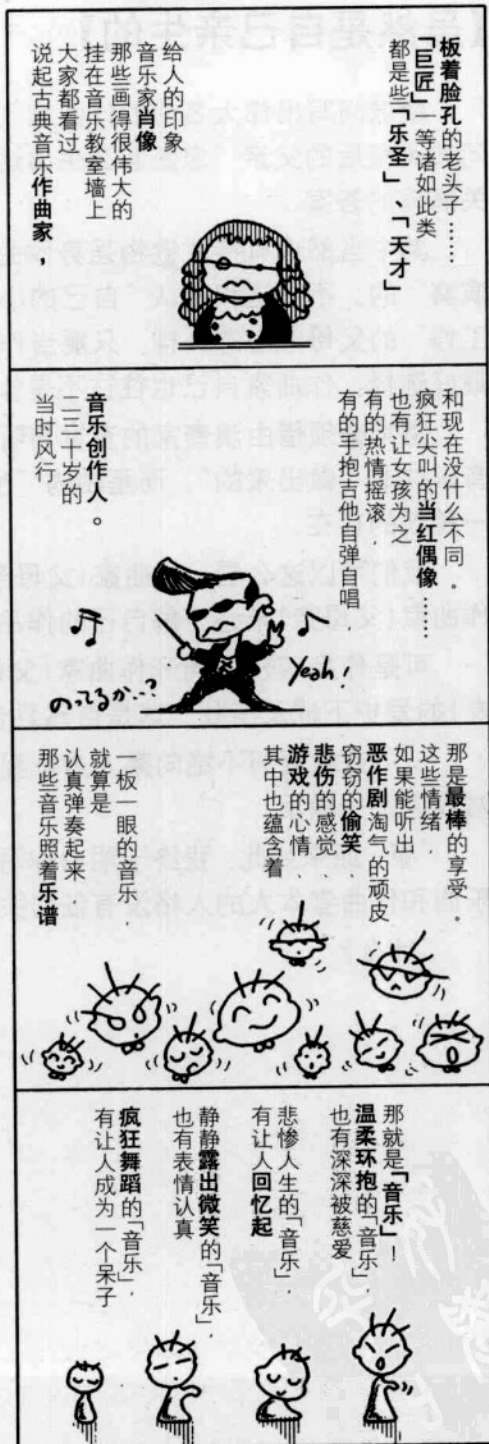 说起古典音乐作曲家，
大家都看过
挂在音乐教室墙上
那些画得很伟大的
音乐家肖像
给人的印象
都是些「乐圣」、「天才」
「巨匠」等诸如此类
板着脸孔的老头子……
当时风行
二三十岁的
音乐创作人。
有的手抱吉他自弹自唱，
有的热情摇滚，
也有让女孩为之
疯狂尖叫的当红偶像……
和现在没什么不同。
のってるか…?
Yeah!
那些音乐照着乐谱
认真弹奏起来
就算是
一板一眼的音乐，
其中也蕴含着
游戏的心情
悲伤的感觉
窃窃的偷笑
恶作剧淘气的顽皮
如果能听出
这些情绪
那是最棒的享受。
有让人成为一个呆子
疯狂舞蹈的「音乐」，
也有表情认真
静静露出微笑的「音乐」，
有让人回忆起
悲惨人生的「音乐」，
也有深深被慈爱
温柔环抱的「音乐」，
那就是「音乐」！